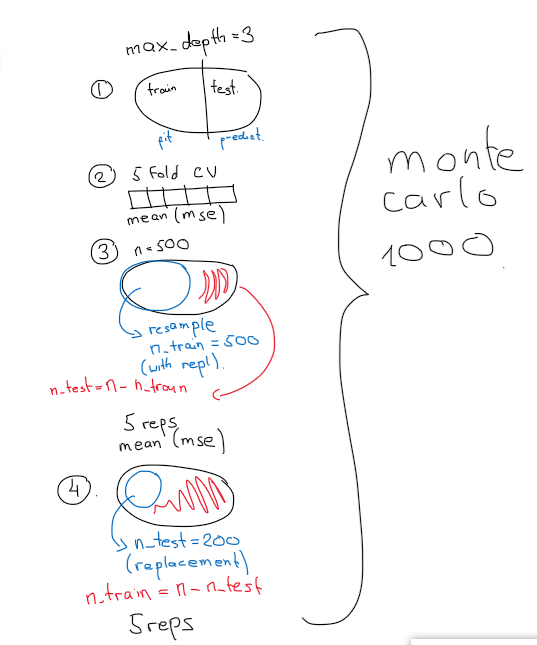 max_depth=3
1
train test.
fit predict.
2 5 Fold CV
mean (mse)
3 n=500
resample
n_train = 500
(with repl).
n_test=n-n_train
5 reps
mean (mse)
4.
n_test=200
(replacement)
n_train = n-n_test
5reps
monte
carlo
1000.